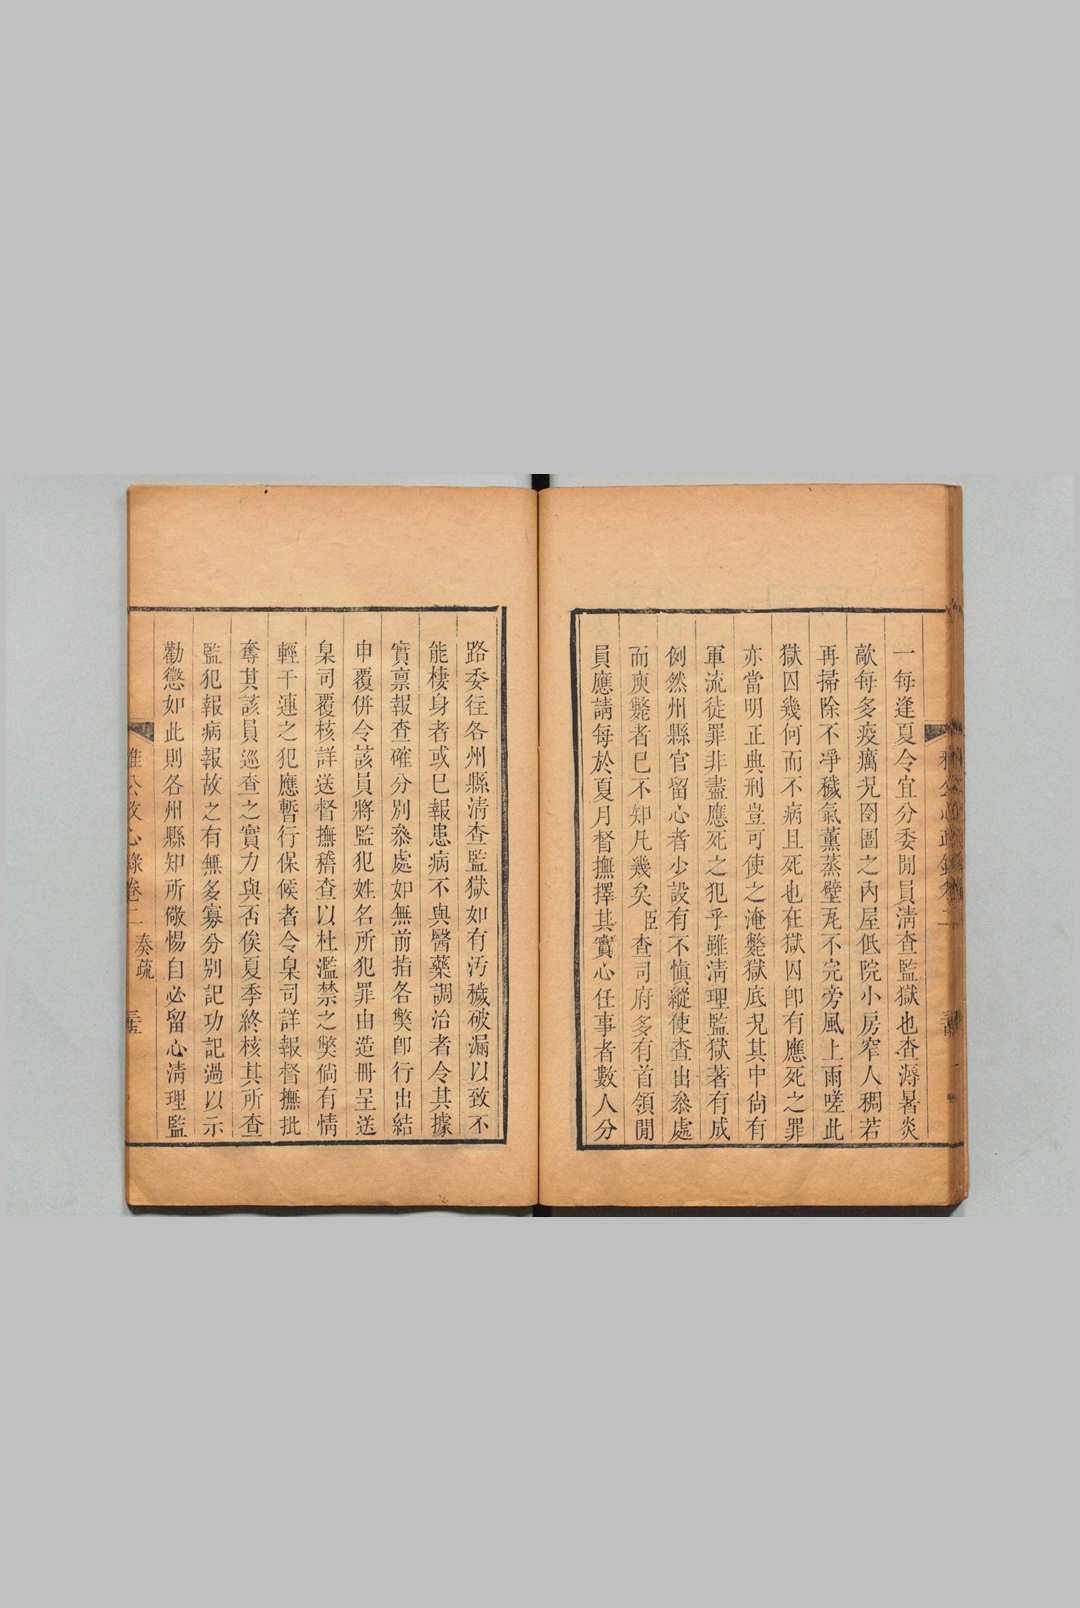 一每逢夏令宜分委閒員清查監獄也查溽暑炎
歊每多疫癘况囹圄之內屋低院小房窄人稠若
再掃除不凈穢氣薰蒸壁瓦不完旁風上雨嗟此
獄囚幾何而不病且死也在獄囚卽有應死之罪
亦當明正典刑豈可使之淹斃獄底况其中尙有
軍流徒罪非盡應死之犯乎雖清理監獄著有成
例然州縣官留心者少設有不愼縱使查出叅處
而庾斃者已不知凡幾矣臣查司府多有首領閒
員應請每於夏月督撫擇其實心任事者數人分
路委往各州縣清查監獄如有汚穢破漏以致不
能棲身者或已報患病不與醫藥調治者令其據
實稟報查確分别叅處如無前指各獘卽行出結
申覆併令該員將監犯姓名所犯罪由造冊呈送
臬司覆核詳送督撫稽查以杜濫禁之獘倘有情
輕干連之犯應暫行保候者令臬司詳報督撫批
奪其該員巡查之實力與否俟夏季終核其所查
監犯報病報故之有無多寡分别記功記過以示
勸懲如此則各州縣知所儆惕自必留心清理監
雅公政心錄卷二 奏疏 三五